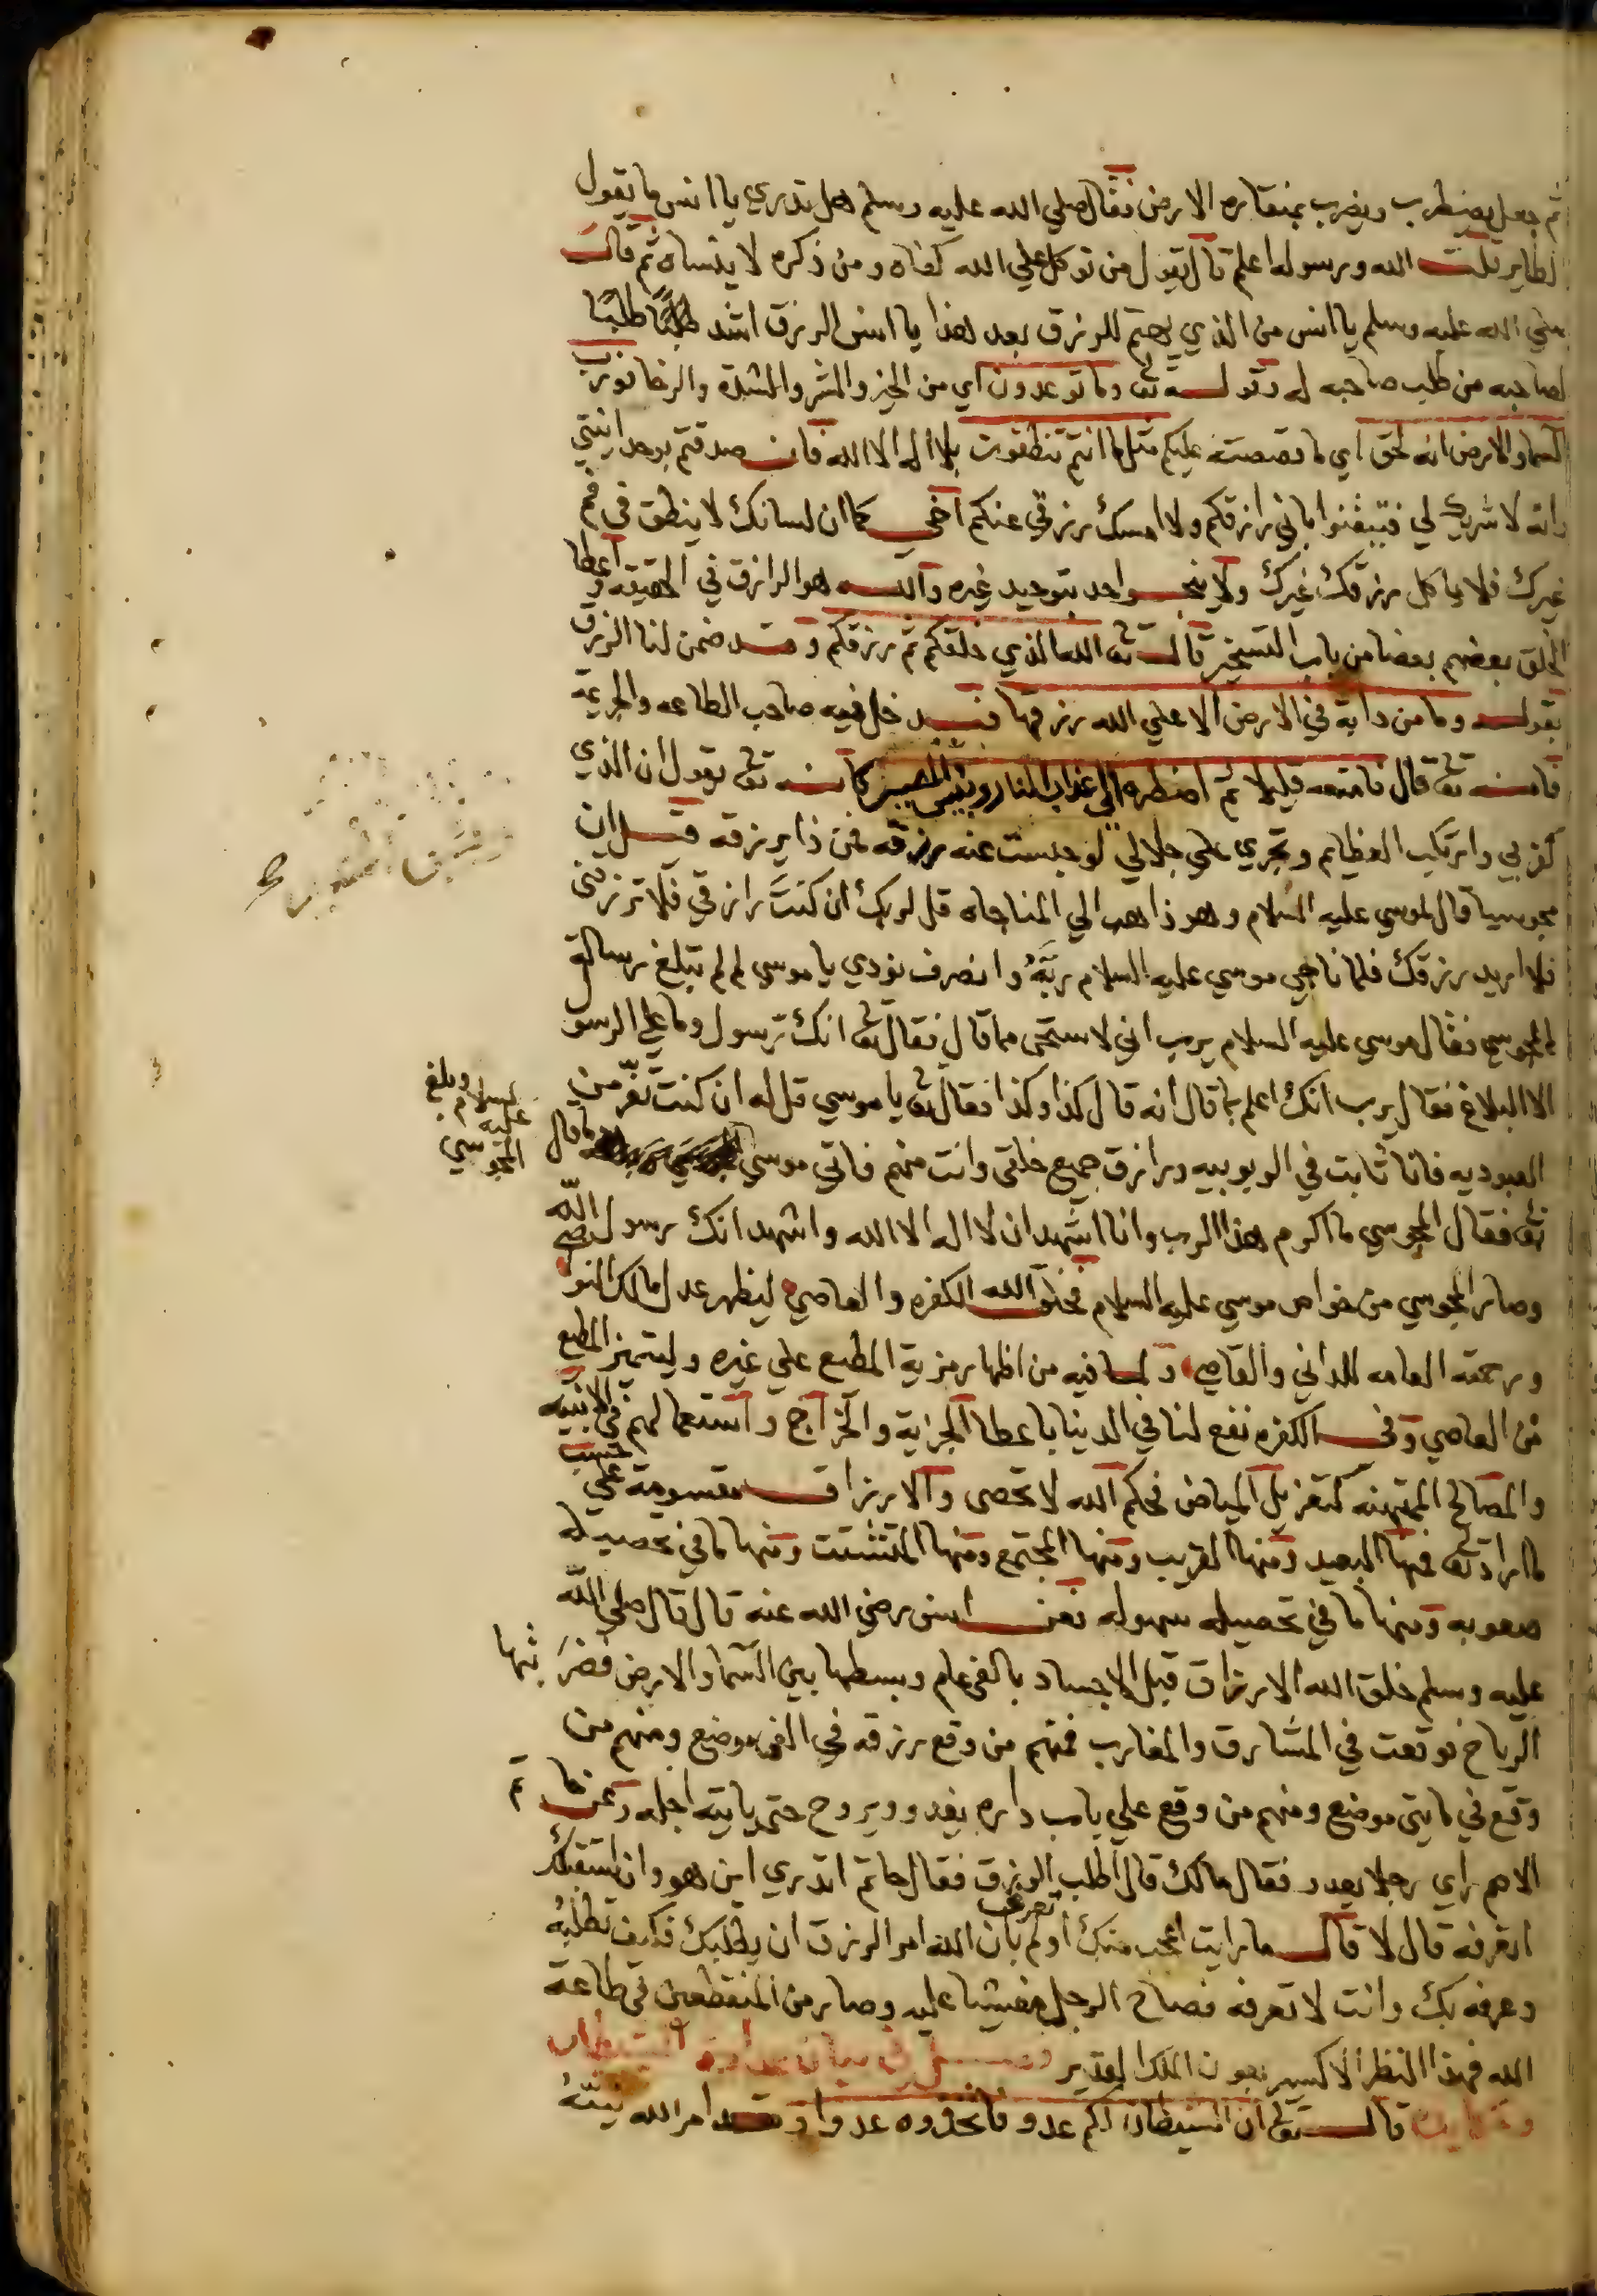 ثم جعل يضطرب ويضرب بمنقاره الارض فقال صلي الله عليه وسلم هل تدري يا انس ما يقول
الطاير قلت الله ورسوله اعلم قال يقول من توكل علي الله كفاه ومن ذكره لا ينساه ثم قالت
صلي الله عليه وسلم يا انس من الذي يهتم للرزق بعد هذا يا انس الرزق اشد طلبًا
لصاحبه من طلب صاحبه له وقوله تعا وما توعدون اي من الخير والشر والشدة والرخا فورب
السما والارض انه لحق اي ما قصصته عليكم مثل ما انتم تنطقون بلا اله الا الله فان صدقتم بوحدانيتي
وانه لا شريك لي فتيقنوا باني رازقكم ولا امسك رزقي عنكم اخي كما ان لسانك لا ينطق في فم
غيرك فلا ياكل رزقك غيرك ولا ينجو احد بتوحيد غيره والله هو الرازق في الحقيقه واعطا
الخلق بعضهم بعضا من باب التسخير قال تعا الله الذي خلقكم ثم رزقكم وقد ضمن لنا الرزق
بقوله وما من دابة في الارض الا علي الله رزقها فدخل فيه صاحب الطاعه والجريمة
فانه تعا قال فامتعه قليلا ثم اضطره الي عذاب النار وبئس المصير كانه تعا يقول ان الذي
كفر بي وارتكب العظايم وتجري علي جلالي لو حبست عنه رزقه فمن ذا يرزقه قيل ان
مجوسيا قال لموسي عليه السلام وهو ذاهب الي المناجاه قل لربك ان كنتَ رازقي فلا ترزقني
فلا اريد رزقك فلما ناجي موسي عليه السلام ربَّهُ وانصرف نودي يا موسي لم لم تبلغ رسالة
المجوسي فقال موسي عليه السلام يرب اني لاستحي مما قال فقال تعا انك رسول وما علي الرسول
الا البلاغ فقال يرب انك اعلم بما قال انه قال كذا وكذا فقال تعا يا موسي قل له ان كنت تفرّ من
العبوديه فانا ثابت في الربوبيه ورازق جميع خلقي وانت منهم فاتي موسي
عليه السلام وبلغ المجوسي ما قال
تعا فقال المجوسي ما اكرم هذا الرب وانا اشهد ان لا اله الا الله واشهد انك رسول الله
وصار المجوسي من خواص موسي عليه السلام فخلق الله الكفره والعاصي ليظهر عدل مالك النو
ورحمته العامه للداني والقاصي ولما فيه من اظهار مزية المطيع علي غيره وليتميز المطيع
من العاصي وفي الكفره نفع لنا في الدنيا باعطا الجزية والخراج واستعمالهم في الابنيه
والمصالح الممتهنه كتعزيل المياض فحكم الله لا تحصى والارزاق مقسومة علي حسب
ما اراد تعا فمنها البعيد ومنها القريب ومنها المجتمع ومنها المتشتت ومنها ما في تحصيله
صعوبه ومنها ما في تحصيله سهوله فعن انس رضي الله عنه قال قال صلي الله
عليه وسلم خلق الله الارزاق قبل الاجساد بالفي عام وبسطها بين السما والارض فضربتها
الرياح فوقعت في المشارق والمغارب فمنهم من وقع رزقه في الفي موضع ومنهم من
وقع في مايتي موضع ومنهم من وقع علي باب داره يغدو ويروح حتي ياتيه اجله وعن حاتم
الاصم راي رجلا يعدو فقال مالك قال اطلب الرزق فقال حاتم اتدري اين هو وان استقبلك
اتعرفه قال لا قال ما رايت اعجب منك اولم تعرف بان الله امر الرزق ان يطلبك فكيف تطلبهُ
وعرفه بك وانت لا تعرفه فصاح الرجل مغشيا عليه وصار من المنقطعين في طاعة
الله فهذا النظر الاكسير بعون الملك القدير فصل في بيان عداوة الشيطان
قال تعا ان الشيطان لكم عدو فاتخذوه عدوا وقد امر الله نبيّهُ